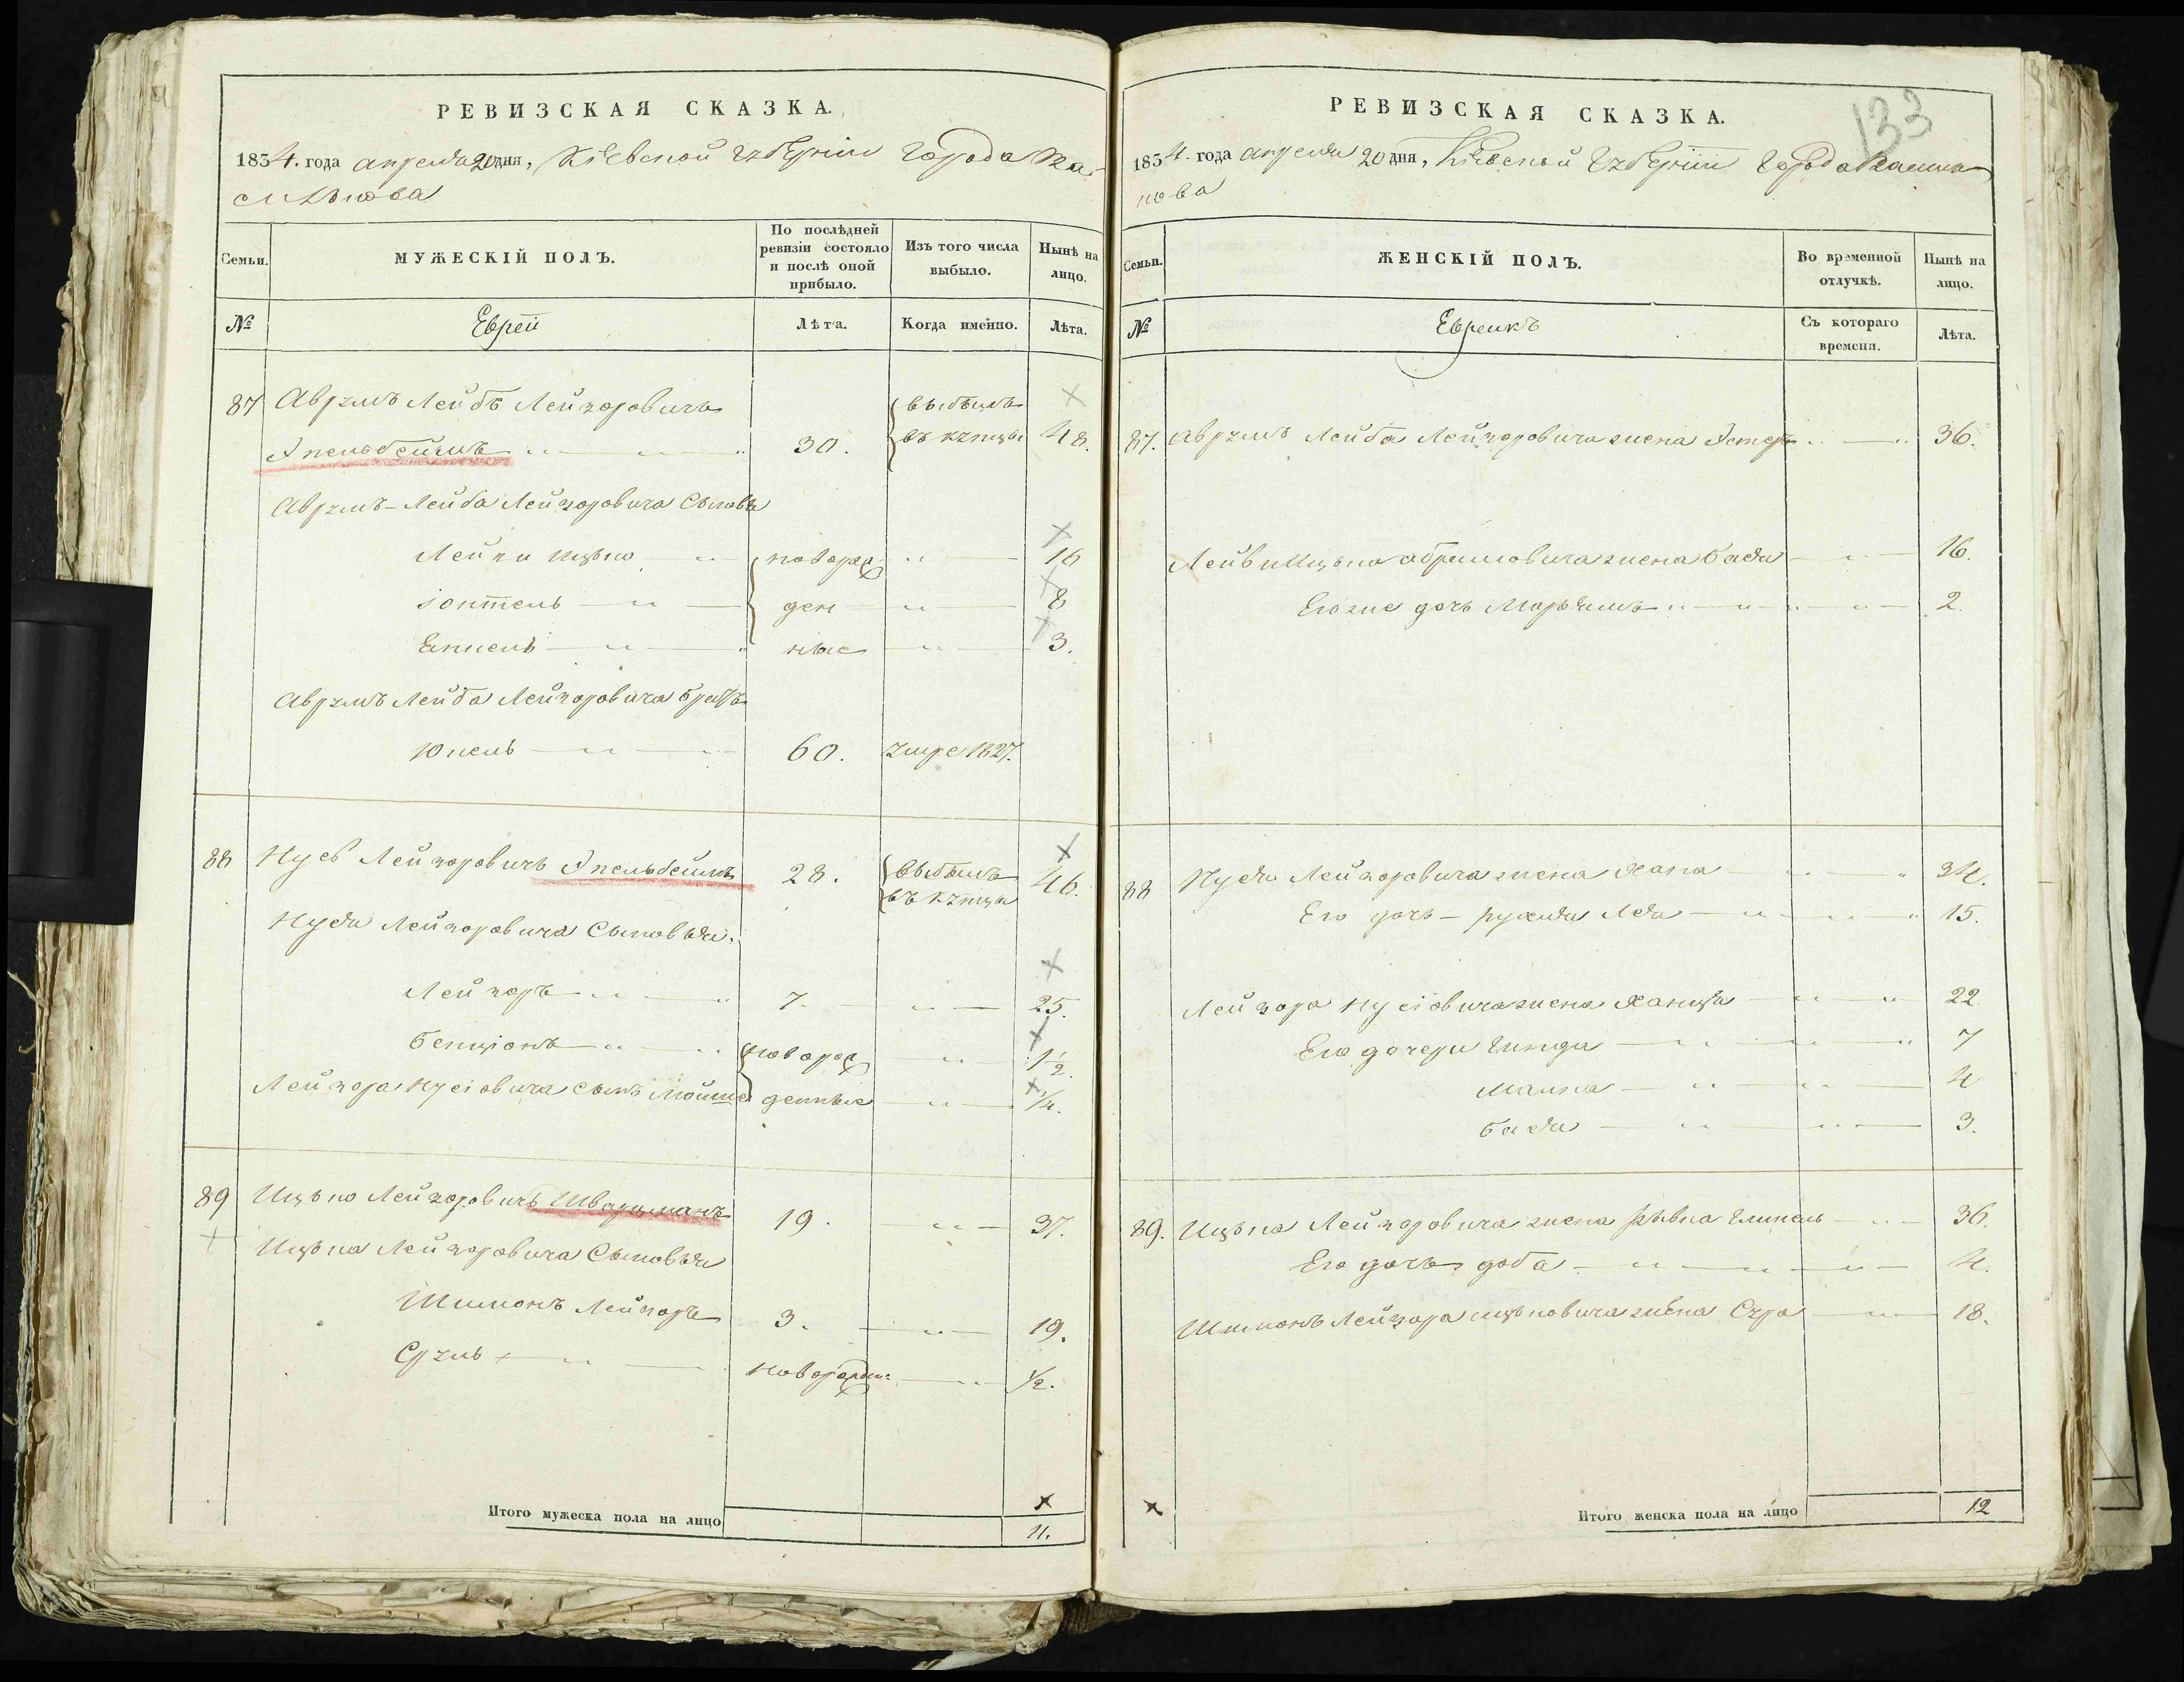 РЕВИЗСКАЯ СКАЗКА.
1834. года апреля 20 дня, Кіевской губерніи города Ва-
силькова
Семьи.
МУЖЕСКІЙ ПОЛЪ.
По послѣдней ревизіи состояло и послѣ оной прибыло.
Изъ того числа выбыло.
Нынѣ на лицо.
№
Еврей
Лѣта.
Когда именно.
Лѣта.
87 Аврумъ Лейбъ Лейзоровичъ
Эпельбеймъ 30. выбылъ въ купцы 48.
Аврумъ-Лейба Лейзоровича Сыновья
Лейви Ицько новорож 16
Іоптель ден 8
Еппель ные 3.
Аврумъ Лейба Лейзоровича братъ
Юкель 60. умре 1827.
88 Нусь Лейзоровичъ Эпельбеймъ 28. выбылъ въ купцы 46.
Нуся Лейзоровича Сыновья:
Лейзоръ 7. 25.
Бенціонъ новорож 1 1/2.
Лейзора Нусіовича сынъ Мошие денные 1/4.
89 Ицько Лейзоровичъ Шварцманъ 19. 37.
Ицька Лейзоровича Сыновья
Шимонъ Лейзоръ 3. 19.
Сруль новорожден: 1/2.
Итого мужеска пола на лицо
11.
133
РЕВИЗСКАЯ СКАЗКА.
1834. года апреля 20 дня, Кіевской Губерніи Города Василь
кова
Семьи.
ЖЕНСКІЙ ПОЛЪ.
Во временной отлучкѣ.
Нынѣ на лицо.
№
Евреикъ
Съ котораго времени.
Лѣта.
87. Аврумъ Лейба Лейзоровича жена Эстеръ 36.
Лейви Ицька Абрамовича жена Бася 16.
Его же дочь Марьямъ 2.
88 Нуся Лейзоровича жена Хана 34.
Его дочь - Рухля Лея 15.
Лейзора Нусіовича жена Ханця 22
Его дочери Гинда 7
Манна 4
Бася 3.
89. Ицька Лейзоровича жена Рывка 36.
Его дочь доба 4.
Шимонъ Лейзора ицьковича жена Сура 18.
Итого женска пола на лицо
12